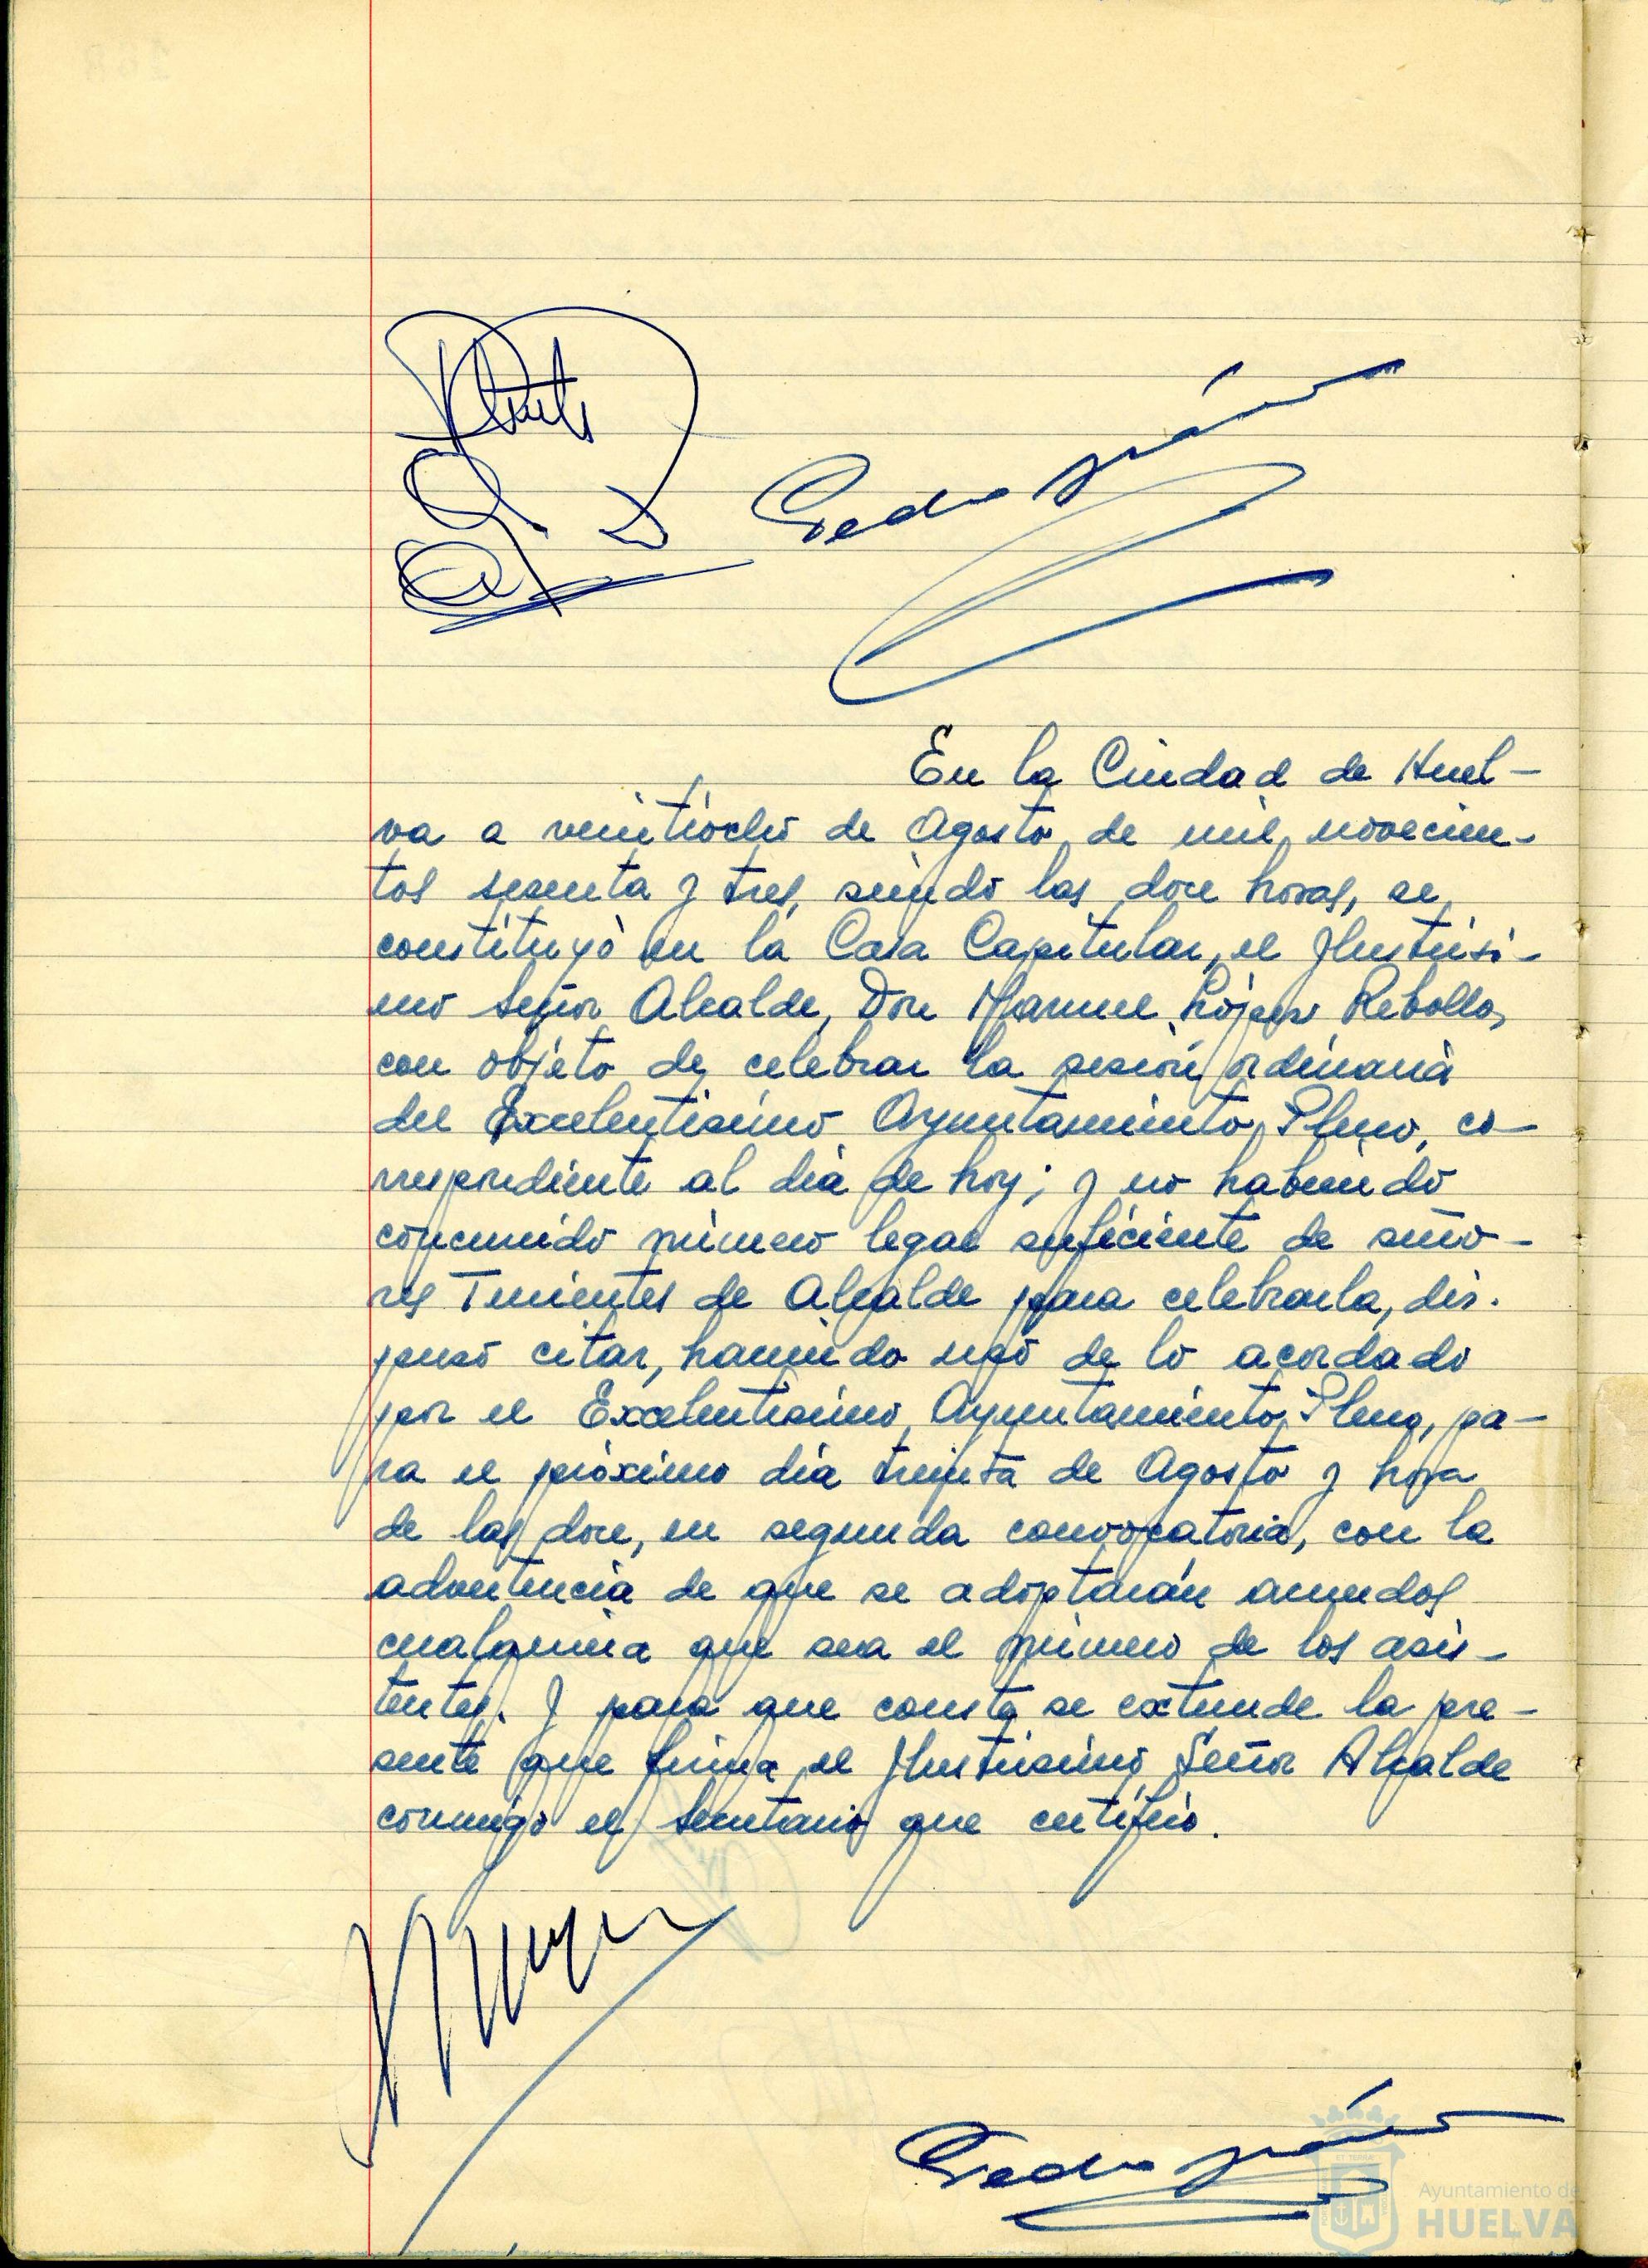 En la Ciudad de Huel-
va a veintiocho de Agosto de mil novecien-
tos sesenta y tres, siendo las doce horas, se
constituyó en la Casa Capitular, el Ilustrísi-
mo Señor Alcalde, Don Manuel López Rebollo,
con objeto de celebrar la sesión ordinaria
del Excelentísimo Ayuntamiento Pleno, co-
rrespondiente al día de hoy; y no habiendo
concurrido número legal suficiente de seño-
res Tenientes de Alcalde para celebrarla, dis-
puso citar, haciendo uso de lo acordado
por el Excelentísimo Ayuntamiento Pleno, pa-
ra el próximo día treinta de Agosto y hora
de las doce, en segunda convocatoria, con la
advertencia de que se adoptarán acuerdos
cualquiera que sea el número de los asis-
tentes. Y para que conste se extiende la pre-
sente que firma el Ilustrísimo Señor Alcalde
conmigo el Secretario que certifico.
Ayuntamiento de
HUELVA